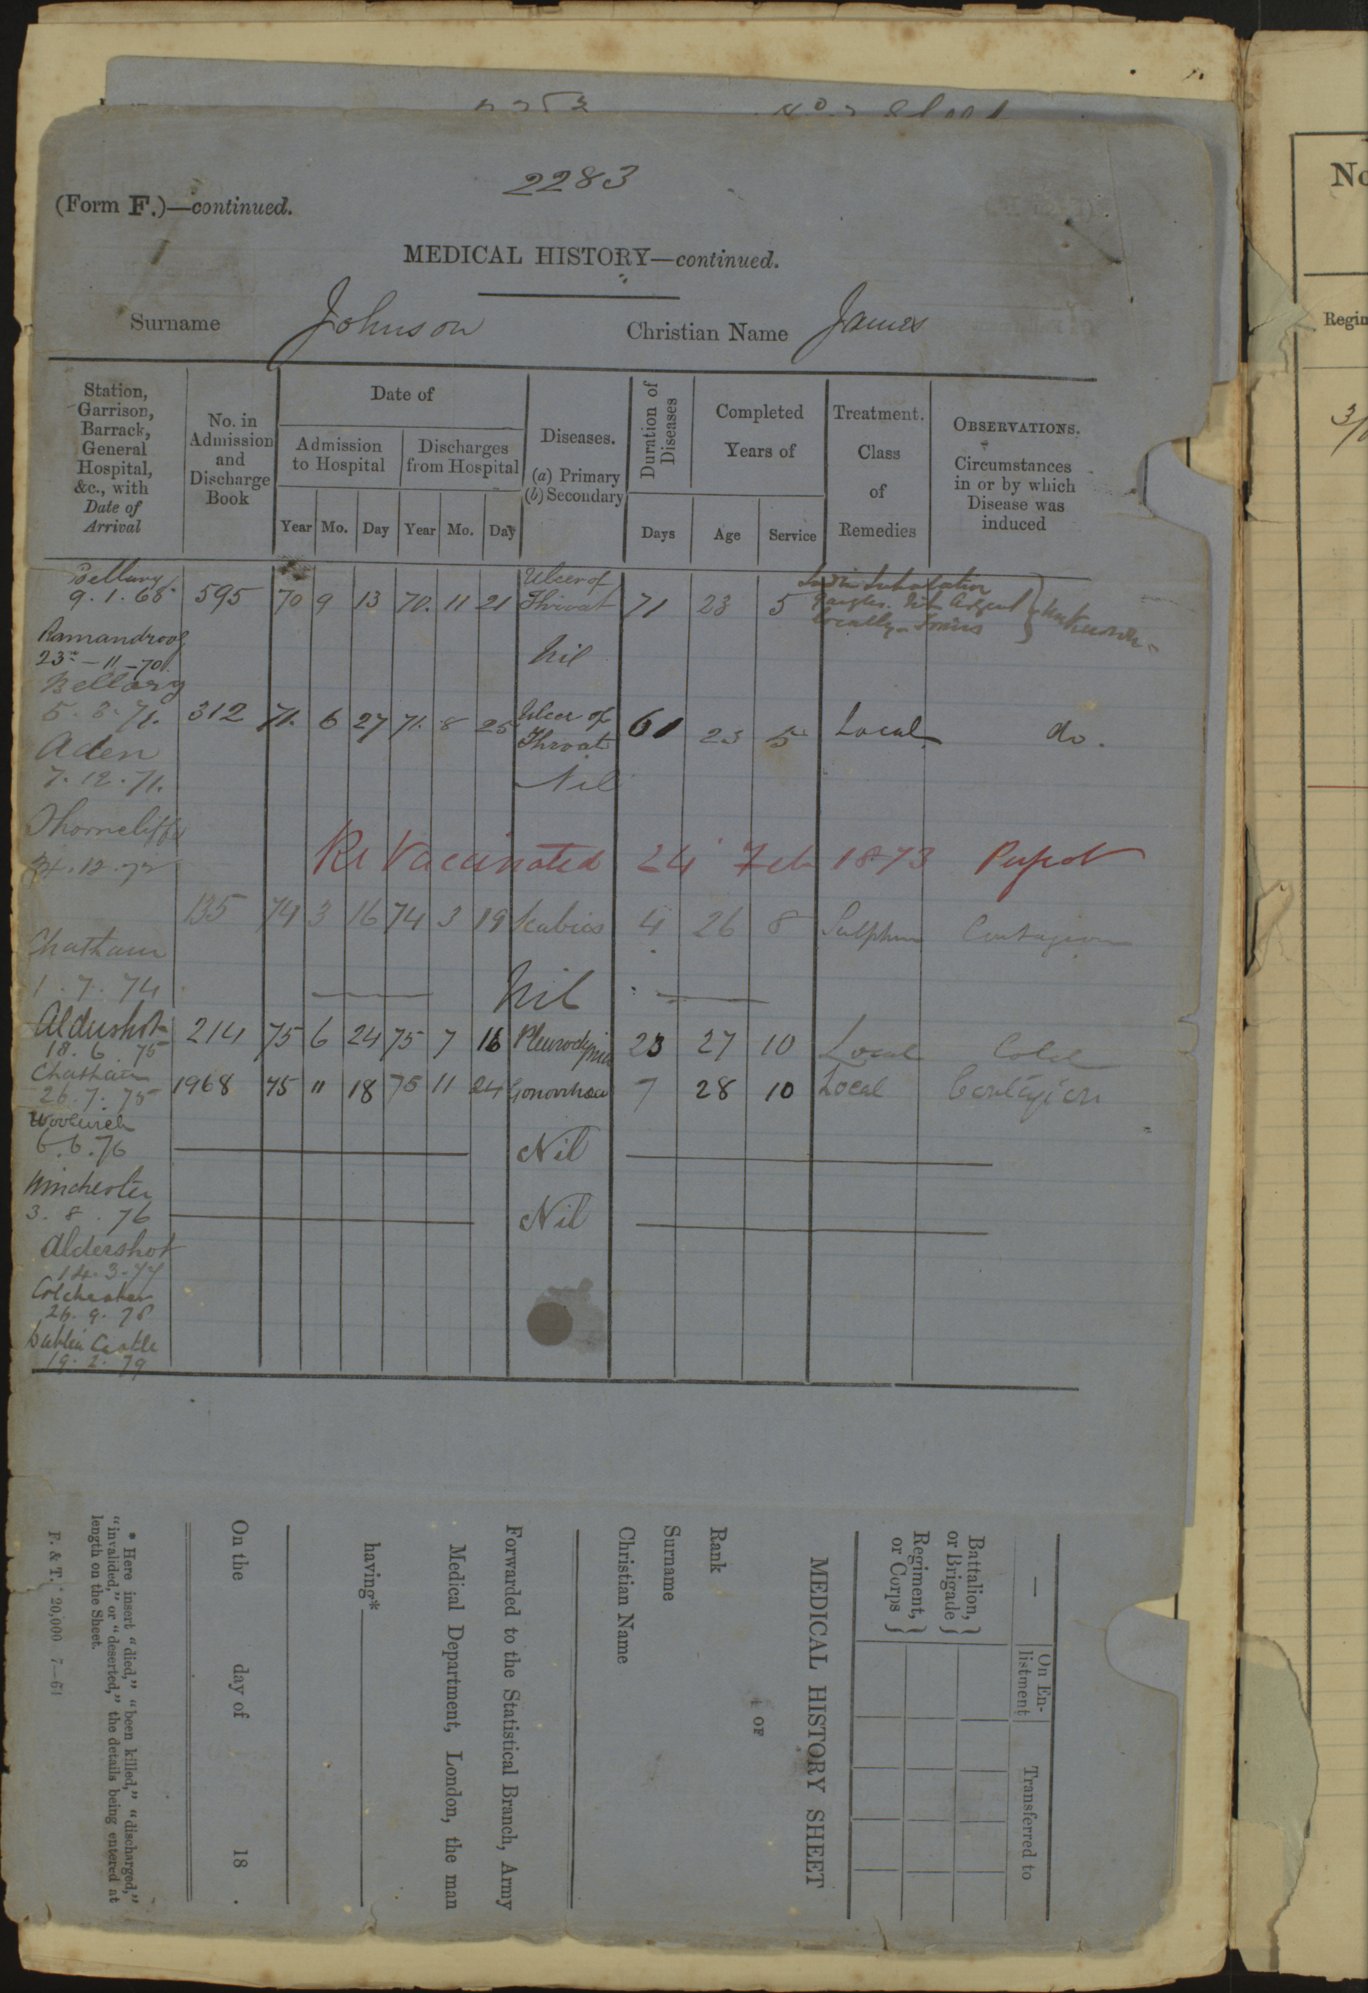 2283
(Form F.)—continued.
MEDICAL HISTORY—continued.
Surname Johnson Christian Name James
Station, Garrison, Barrack, General Hospital, &c., with Date of Arrival
No. in Admission and Discharge Book
Date of
Admission to Hospital
Discharges from Hospital
Year Mo. Day Year Mo. Day
Diseases. (a) Primary (b) Secondary
Duration of Diseases
Days
Completed Years of
Age Service
Treatment. Class of Remedies
OBSERVATIONS. Circumstances in or by which Disease was induced
Bellary
9.1.68 595 70 9 13 70. 11 21 Ulcer of Throat 71 23 5 Locally Unknown
Ramandroog
23rd-11-70. Nil
Bellary
5.3.71. 312 71. 6 27 71. 8 25 Ulcer of Throat 61 23 5 Local do.
Aden
7.12.71. Nil
Thorncliffe
Re Vaccinated 24 Feb 1873 Perfect
.12.72
135 74 3 16 74 3 19 Scabies 4 26 8 Sulphur Contagion
Chatham
1.7.74 Nil
Aldershot 214 75 6 24 75 7 16 Pleurodynia 23 27 10 Local Cold
18.6.75
Chatham 1968 75 11 18 75 11 24 Gonorrhoea 7 28 10 Local Contagion
26.7.75
Woolwich
6.6.76 Nil
Winchester
3.8.76 Nil
Aldershot
14.3.77
Colchester
26.9.78
Dublin Castle
19.2.79
—
On Enlistment
Transferred to
Battalion, or Brigade
Regiment, or Corps
MEDICAL HISTORY SHEET
OF
Rank
Surname
Christian Name
Forwarded to the Statistical Branch, Army
Medical Department, London, the man
having*
On the day of 18 .
* Here insert "died," "been killed," "discharged,"
"invalided," or "deserted," the details being entered at
length on the Sheet.
F. & T. 20,000 7—61
No
Regim